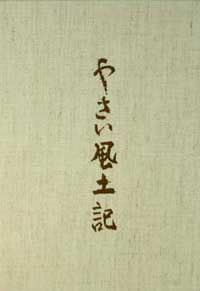 やさい風土記